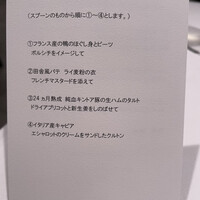 (スプーンのものから順に①ー④とします。)
①フランス産の鴨のほぐし身とビーツ
ボルシチをイメージして
②田舎風パテ ライ麦粉の衣
フレンチマスタードを添えて
③24ヵ月熟成 純血キントア豚の生ハムのタルト
ドライアプリコットと新生姜をしのばせて
④イタリア産キャビア
エシャロットのクリームをサンドしたクルトン